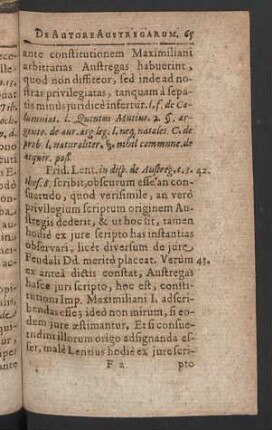 DE AUTORE AUSTREGARUM. 65
ante constitutionem Maximiliani
arbitrarias Austregas habuerint,
quod non diffiteor, sed inde ad no-
stras privilegiatas, tanquam à sepa-
tis minùs juridicè infertur. l. f. de Ca-
lumniat. l. Quintus Mutius. 2. §. ar-
gento. de aur. arg. leg. l. neq; natales. C. de
prob. l. naturaliter. §. nihil commune. de
acquir. poss.
Frid. Lent. in disp. de Austreg. c. 3. 42.
thes. 8. scribit, obscurum esse an con-
suetudo, quod verisimile, an verò
privilegium scriptum originem Au-
stregis dederit, & ut hoc sit, tamen
hodiè ex jure scripto has instantias
observari, licèt diversum de jure
Feudali Dd. meritò placeat. Verùm 43.
ex anteà dictis constat, Austregas
hasce juri scripto, hoc est, consti-
tutioni Imp. Maximiliani I. adscri-
bendas esse; ideò non mirum, si eo-
dem jure æstimantur. Et si consue-
tudini illorum origo adsignanda es-
set, malè Lentius hodiè ex jure scri-
F 2 pto